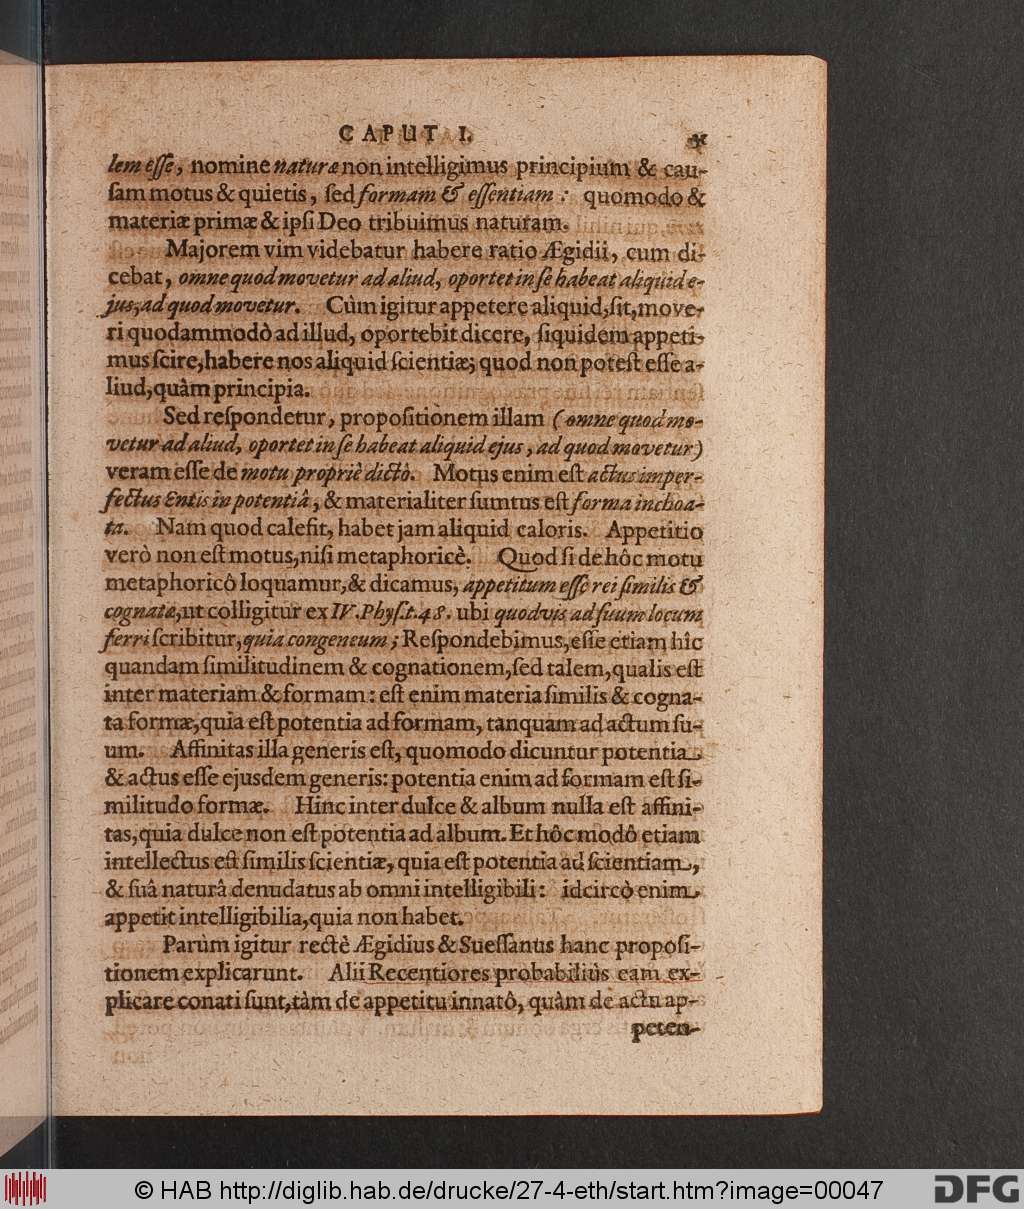 CAPUT I.
lem eſſe, nomine naturæ non intelligimus principium & cau-
ſam motus & quietis, ſed formam & eſſentiam: quomodo &
materiæ primæ & ipſi Deo tribuimus naturam.
Majorem vim videbatur habere ratio Ægidii, cum di-
cebat, omne quod movetur ad aliud, oportet in ſe habeat aliquid e-
jus, ad quod movetur. Cùm igitur appetere aliquid, ſit, move-
ri quodammodò ad illud, oportebit dicere, ſiquidem appeti-
mus ſcire, habere nos aliquid ſcientiæ; quod non poteſt eſſe a-
liud, quàm principia.
Sed reſpondetur, propoſitionem illam (omne quod mo-
vetur ad aliud, oportet in ſe habeat aliquid ejus, ad quod movetur)
veram eſſe de motu propriè dictô. Motus enim eſt actus imper-
fectus Entis in potentiâ, & materialiter ſumtus eſt forma inchoa-
ta. Nam quod calefit, habet jam aliquid caloris. Appetitio
verò non eſt motus, niſi metaphoricè. Quod ſi de hôc motu
metaphoricô loquamur, & dicamus, appetitum eſſe rei ſimilis &
cognatæ, ut colligitur ex IV. Phyſ. t. 48. ubi quodvis ad ſuum locum
ferri ſcribitur, quia congeneum; Reſpondebimus, eſſe etiam hîc
quandam ſimilitudinem & cognationem, ſed talem, qualis eſt
inter materiam & formam: eſt enim materia ſimilis & cogna-
ta formæ, quia eſt potentia ad formam, tanquam ad actum ſu-
um. Affinitas illa generis eſt, quomodo dicuntur potentia
& actus eſſe ejusdem generis: potentia enim ad formam eſt ſi-
militudo formæ. Hinc inter dulce & album nulla eſt affini-
tas, quia dulce non eſt potentia ad album. Et hôc modô etiam
intellectus eſt ſimilis ſcientiæ, quia eſt potentia ad ſcientiam,
& ſuâ naturâ denudatus ab omni intelligibili: idcircò enim
appetit intelligibilia, quia non habet.
Parùm igitur rectè Ægidius & Sueſſanus hanc propoſi-
tionem explicarunt. Alii Recentiores probabiliùs eam ex-
plicare conati ſunt, tàm de appetitu innatô, quàm de actu ap-
peten-
© HAB http://diglib.hab.de/drucke/27-4-eth/start.htm?image=00047
DFG